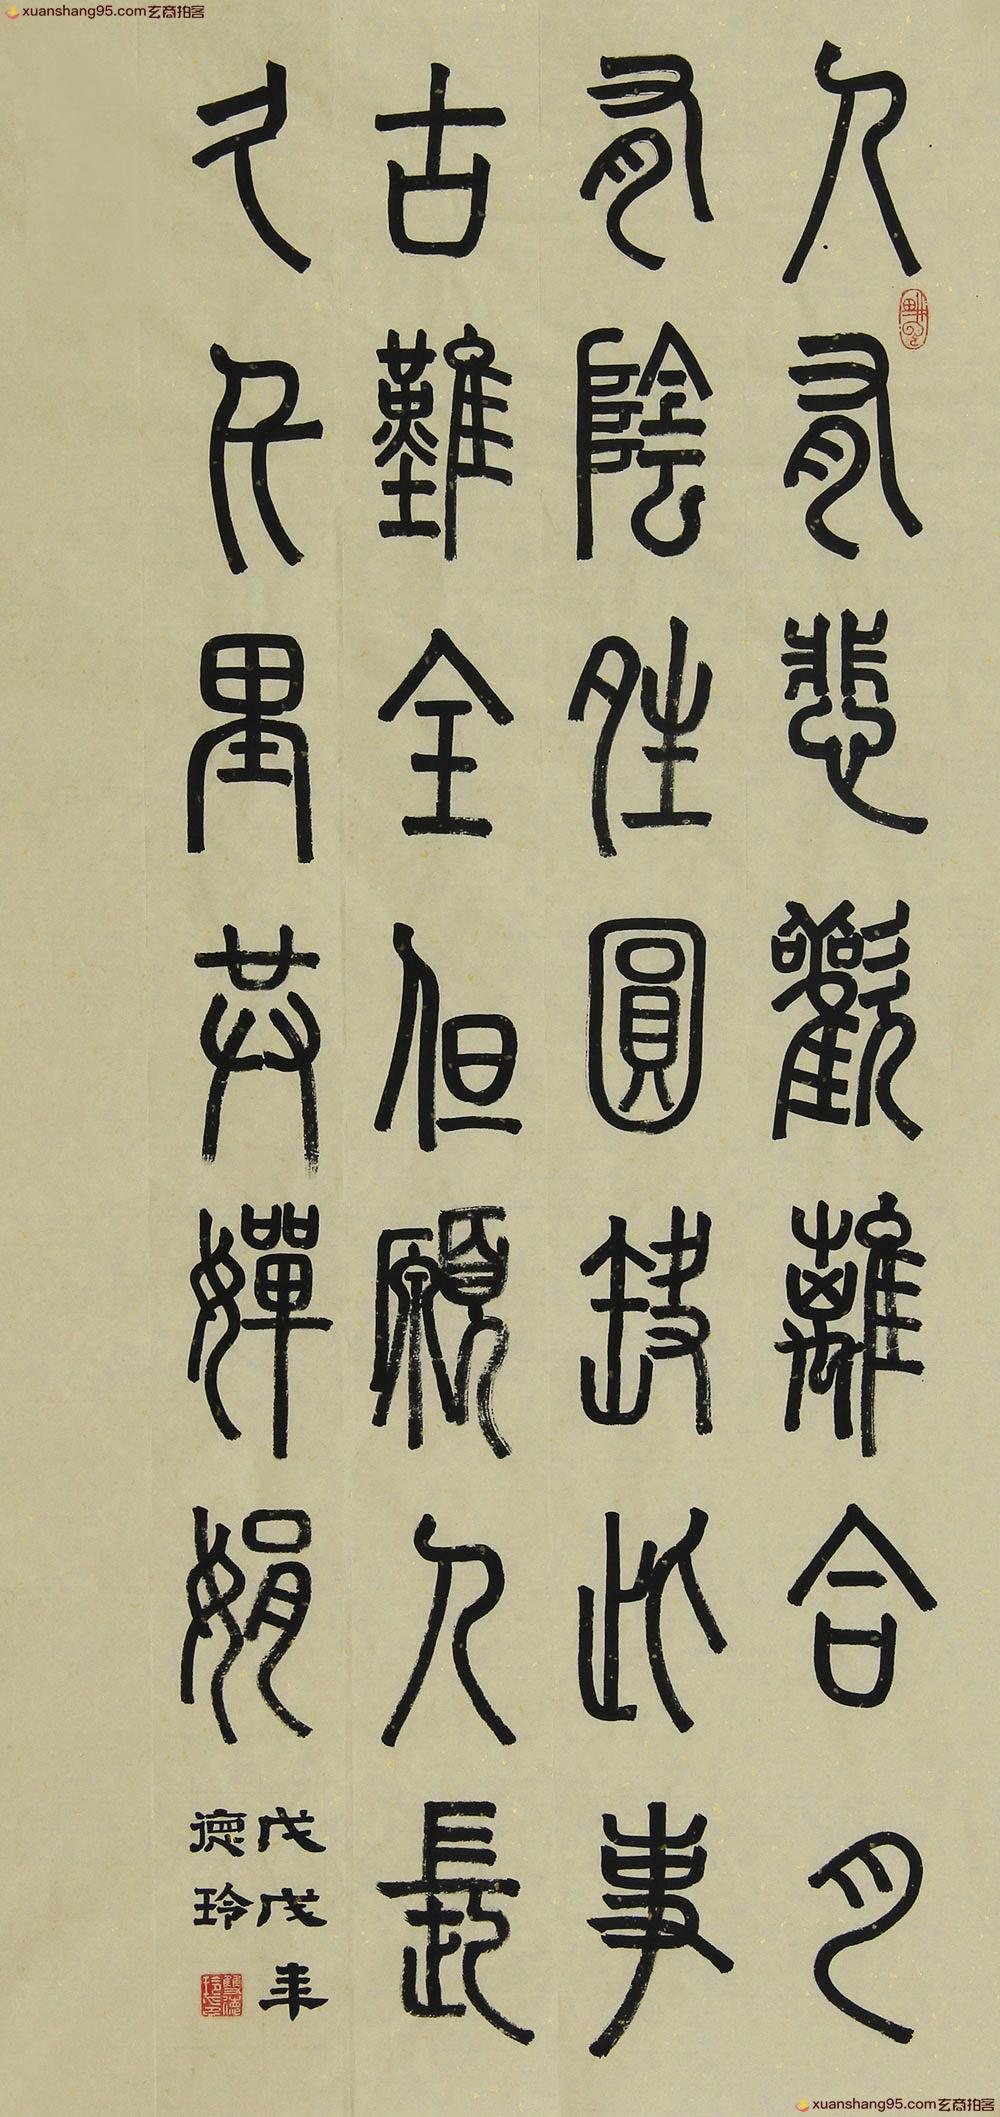 xuanshang95.com玄商拍客
人有悲歡離合月
有陰晴圓缺此事
古難全但願人長
久千里共嬋娟
戊戌年
德玲
xuanshang95.com玄商拍客